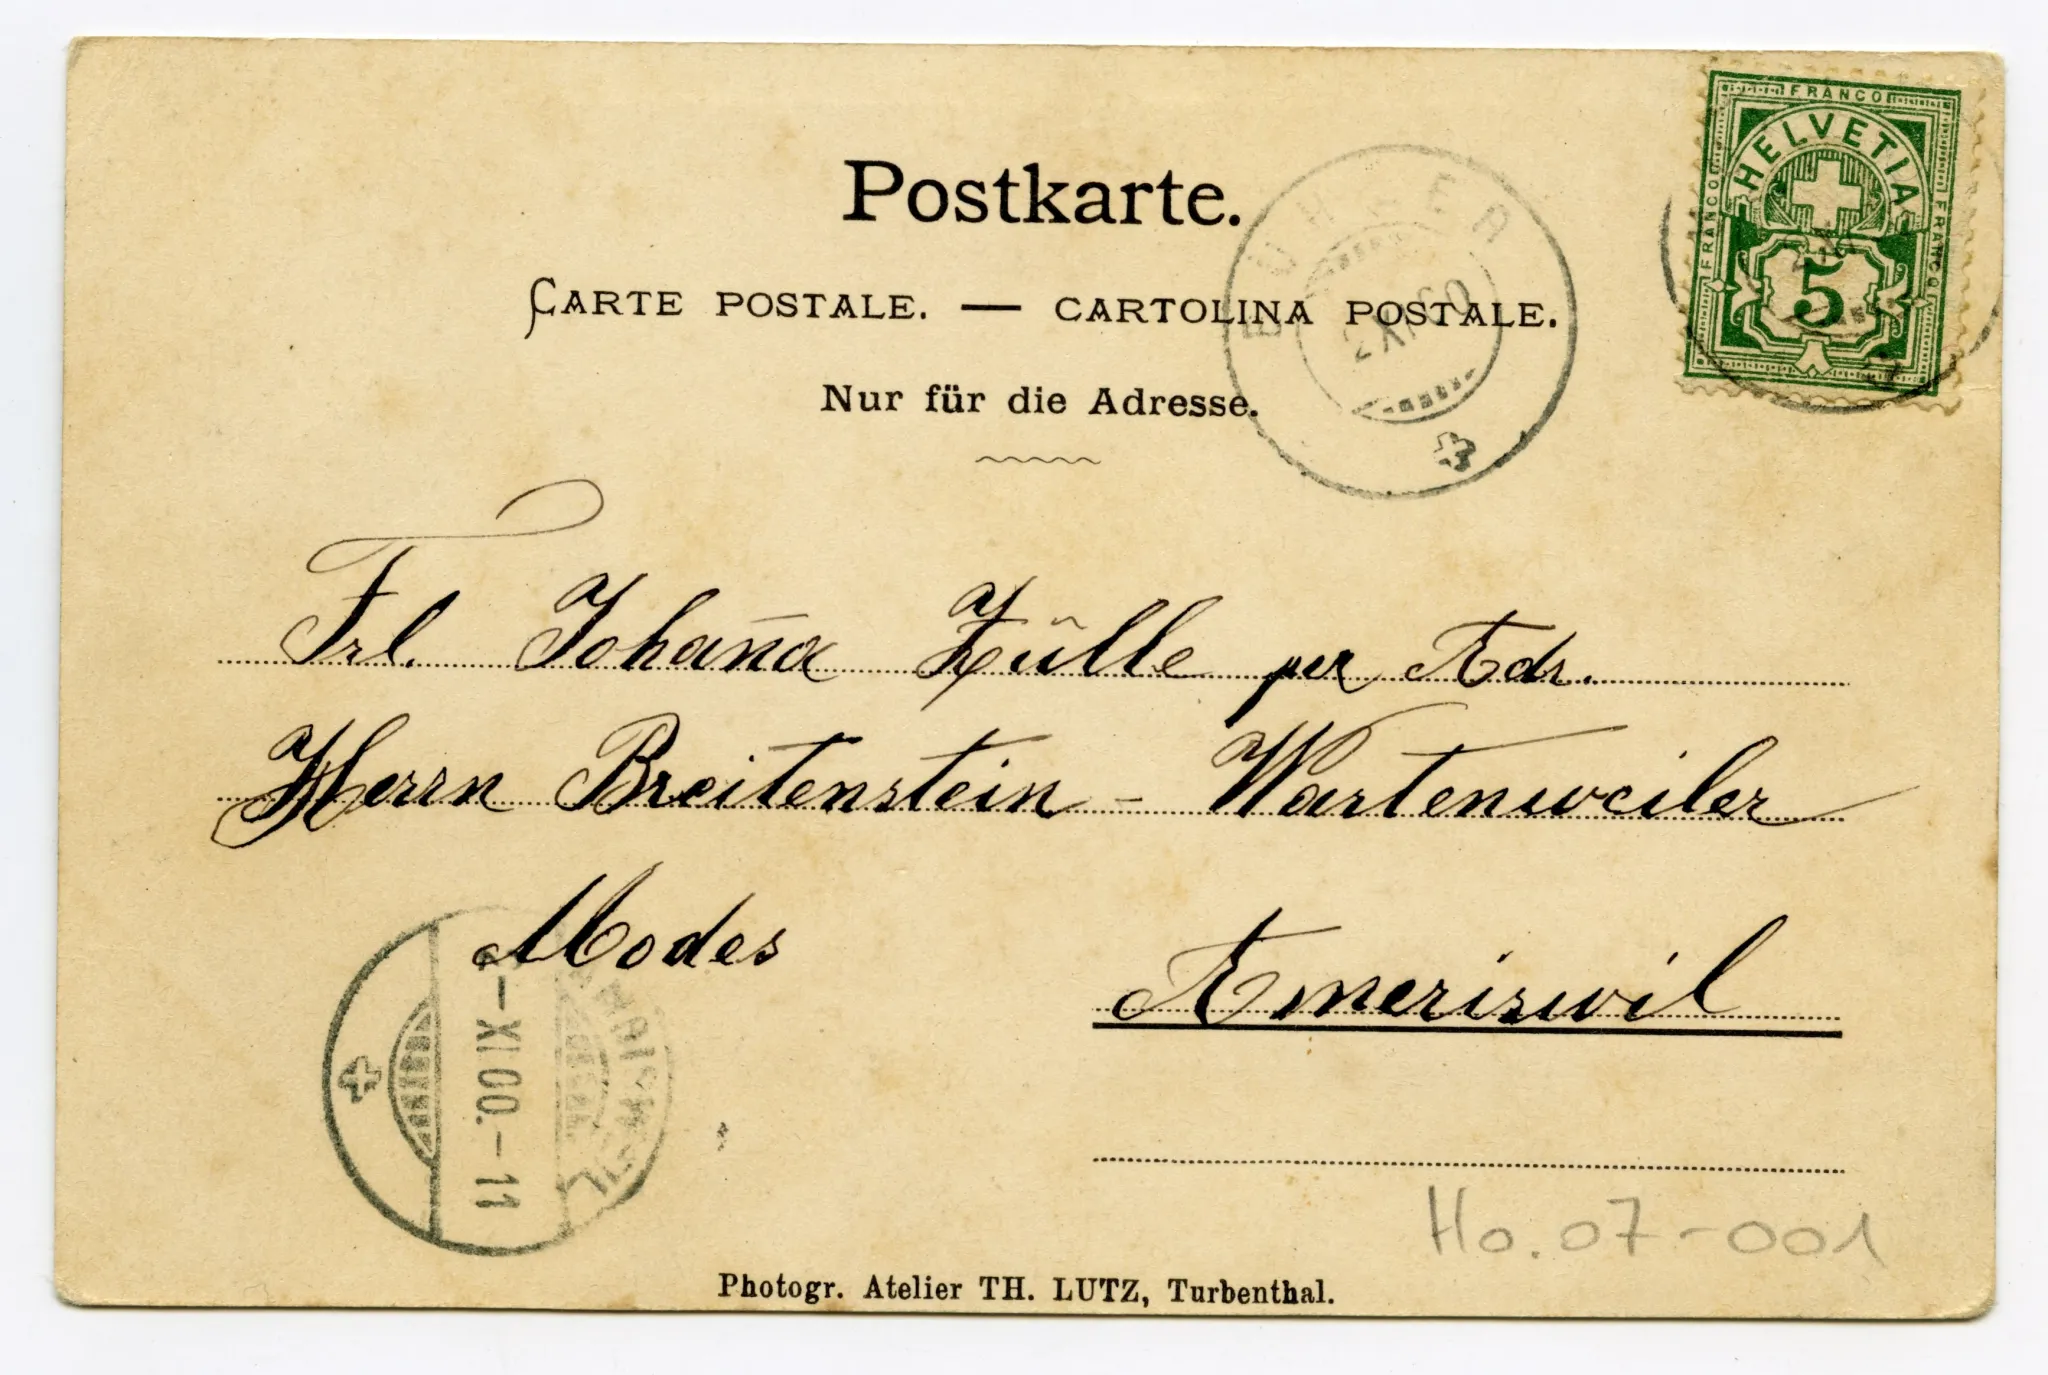 Postkarte.
CARTE POSTALE. — CARTOLINA POSTALE.
Nur für die Adresse.
FRANCO
FRANCO
FRANCO
HELVETIA
5
2 XI 00
Frl. Johan̄a Zülle per Adr.
Herrn Breitenstein - Wartenweiler
Modes
Ameriswil
–XI.00.–11
Ho. 07-001
Photogr. Atelier TH. LUTZ, Turbenthal.